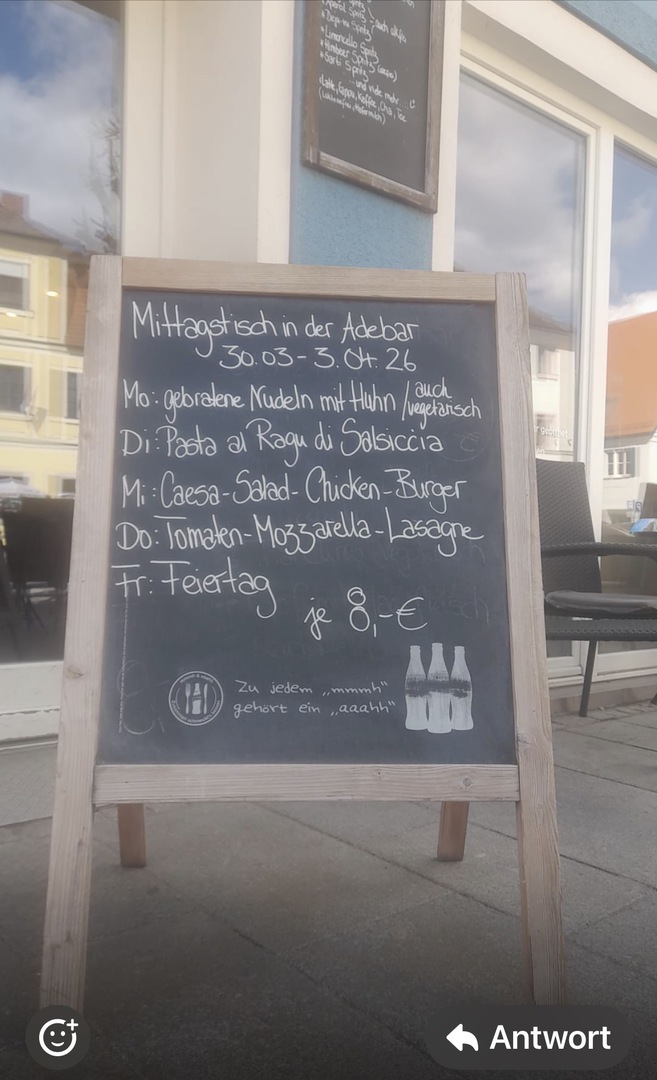 * Limoncello Spritz
* Himbeer Spritz
* Sarti Spritz
...und viele mehr...
Mittagstisch in der Adebar
30.03 - 3.04. 26
Mo: gebratene Nudeln mit Huhn / auch vegetarisch
Di: Pasta al Ragu di Salsiccia
Mi: Caesa-Salad-Chicken-Burger
Do: Tomaten-Mozzarella-Lasagne
Fr: Feiertag
je 8,-€
Zu jedem „mmmh"
gehört ein „aaahh"
Antwort